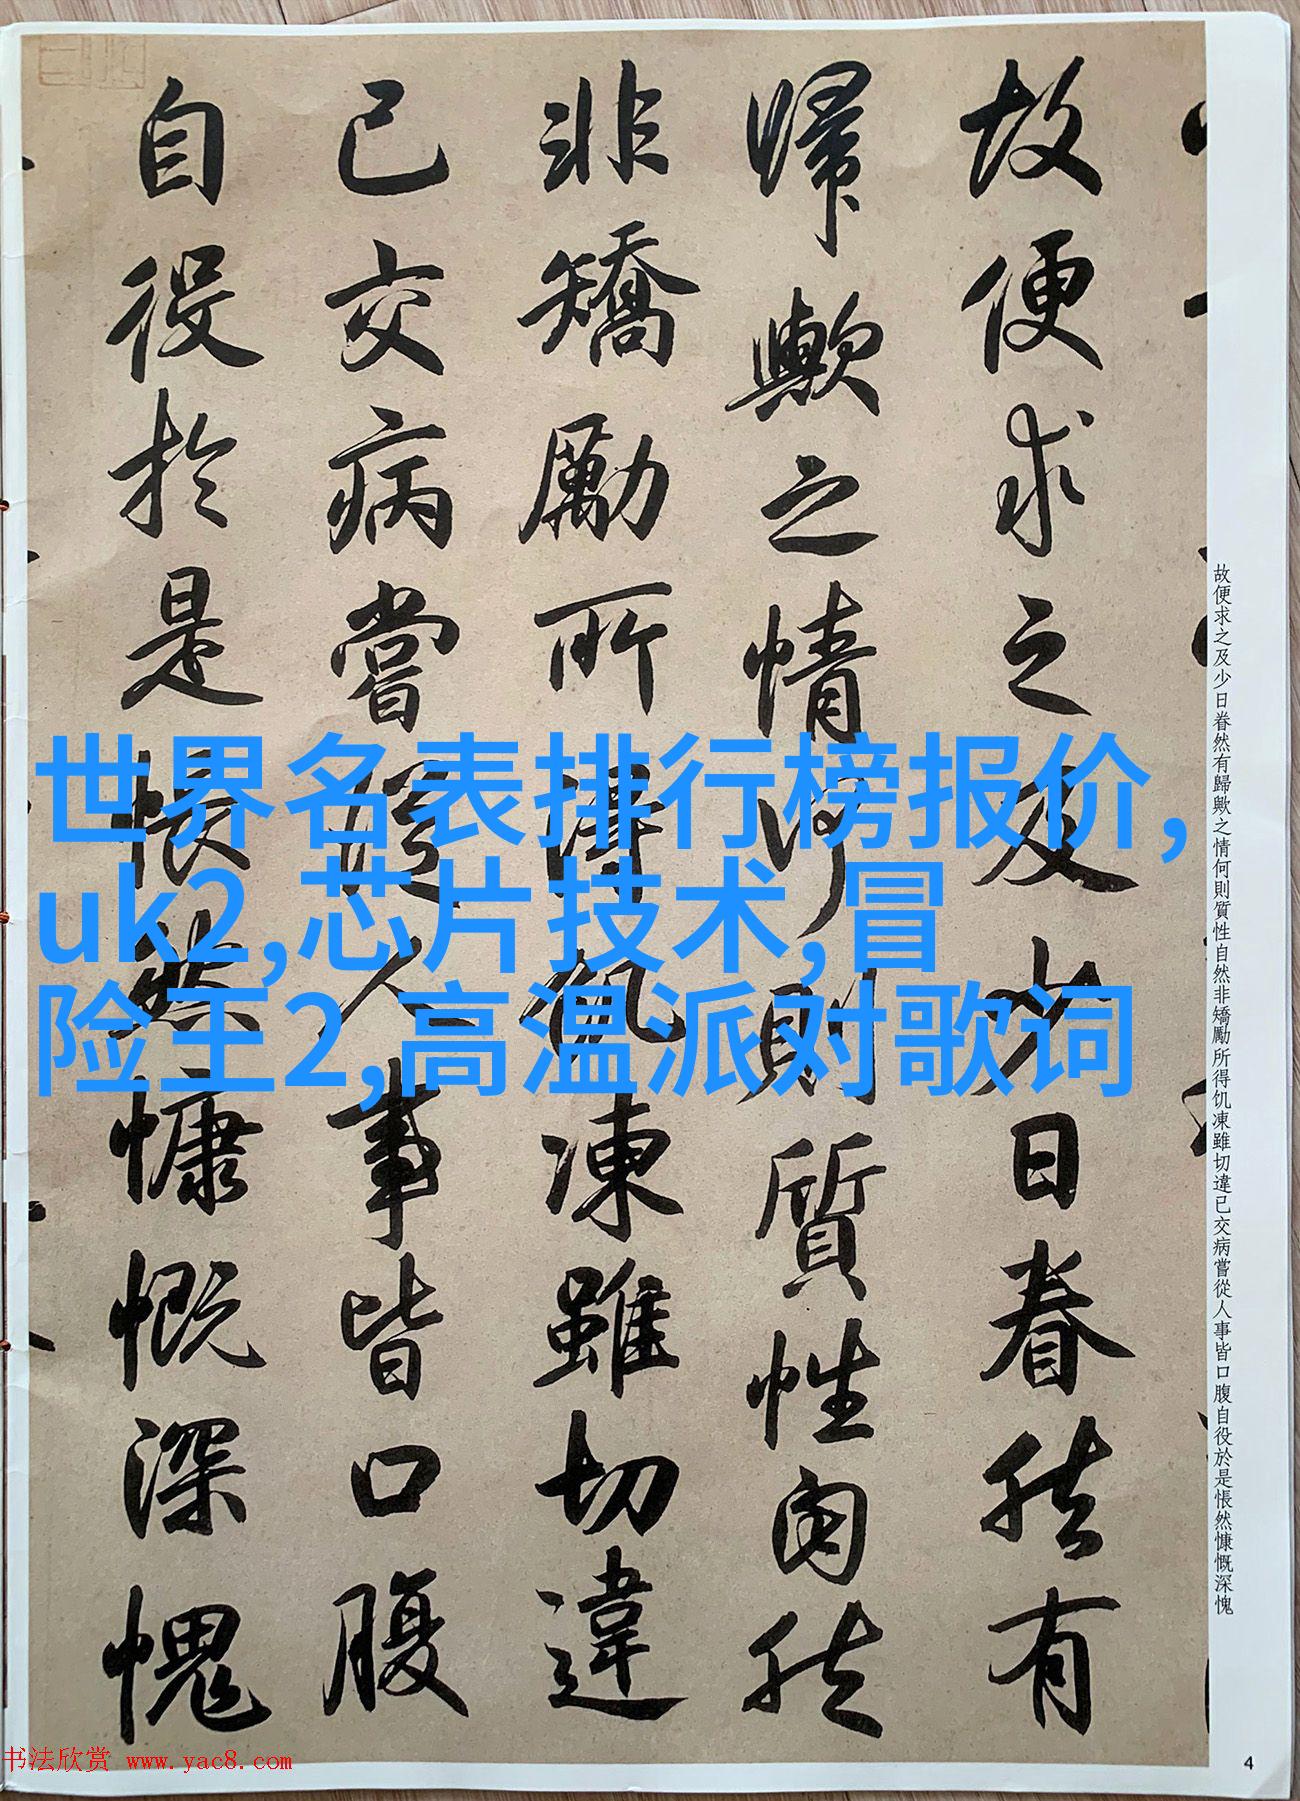 故便求之及少日眷然有
歸歟之情何則質性自然
非矯勵所得飢凍雖切違
已交病嘗從人事皆口腹
自役於是悵然慷慨深愧
世界名表排行榜报价,
uk2,芯片技术,冒
险王2,高温派对歌词
故便求之及少日眷然有歸歟之情何則質性自然非矯勵所得饥凍雖切違已交病嘗從人事皆口腹自役於是悵然慷慨深愧
书法欣赏 www.yac8.com
4